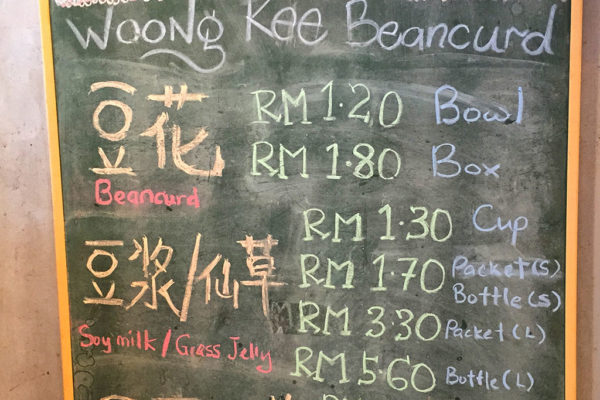 Woong Kee Beancurd
豆花 RM 1.20 Bowl
RM 1.80 Box
Beancurd
RM 1.30 Cup
豆浆/仙草 RM 1.70 Packet(s)
Bottle(s)
RM 3.30 Packet(L)
Soy milk/Grass Jelly
RM 5.60 Bottle(L)